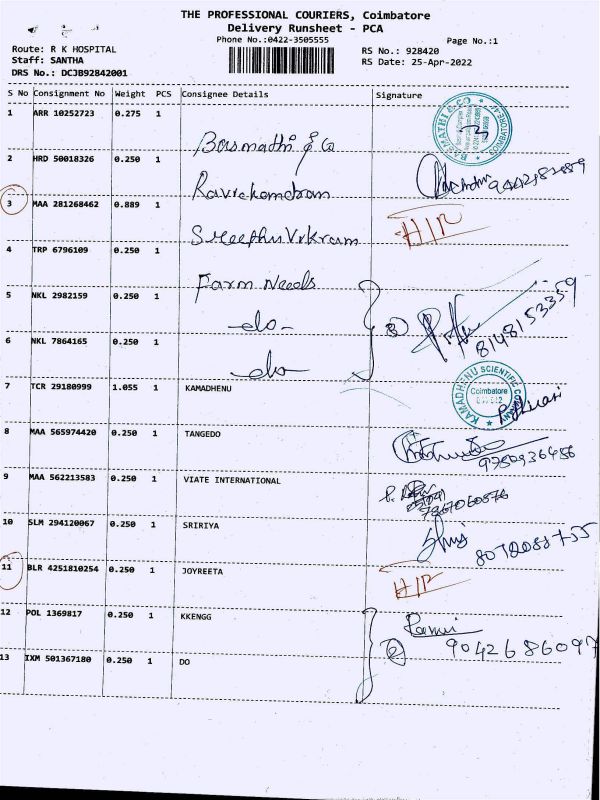 THE PROFESSIONAL COURIERS, Coimbatore
Delivery Runsheet - PCA
Phone No.:0422-3505555
Page No.:1
Route: R K HOSPITAL
Staff: SANTHA
DRS No.: DCJB92842001
RS No.: 928420
RS Date: 25-Apr-2022
S No Consignment No Weight PCS Consignee Details Signature
1 ARR 10252723 0.275 1 Basmathi & Co
2 HRD 50018326 0.250 1 Ravichandran
3 MAA 281268462 0.889 1 Sreephu Vikram H/R
4 TRP 6796109 0.250 1 Farm Needs
5 NKL 2982159 0.250 1 -do- 3 8148153359
6 NKL 7864165 0.250 1 -do-
7 TCR 29180999 1.055 1 KAMADHENU KAMADHENU SCIENTIFIC COMPANY Coimbatore
8 MAA 565974420 0.250 1 TANGEDO 9750936486
9 MAA 562213583 0.250 1 VIATE INTERNATIONAL 7867060876
10 SLM 294120067 0.250 1 SRIRIYA
11 BLR 4251810254 0.250 1 JOYREETA H/R
12 POL 1369817 0.250 1 KKENGG 2 9042686097
13 IXM 501367180 0.250 1 DO